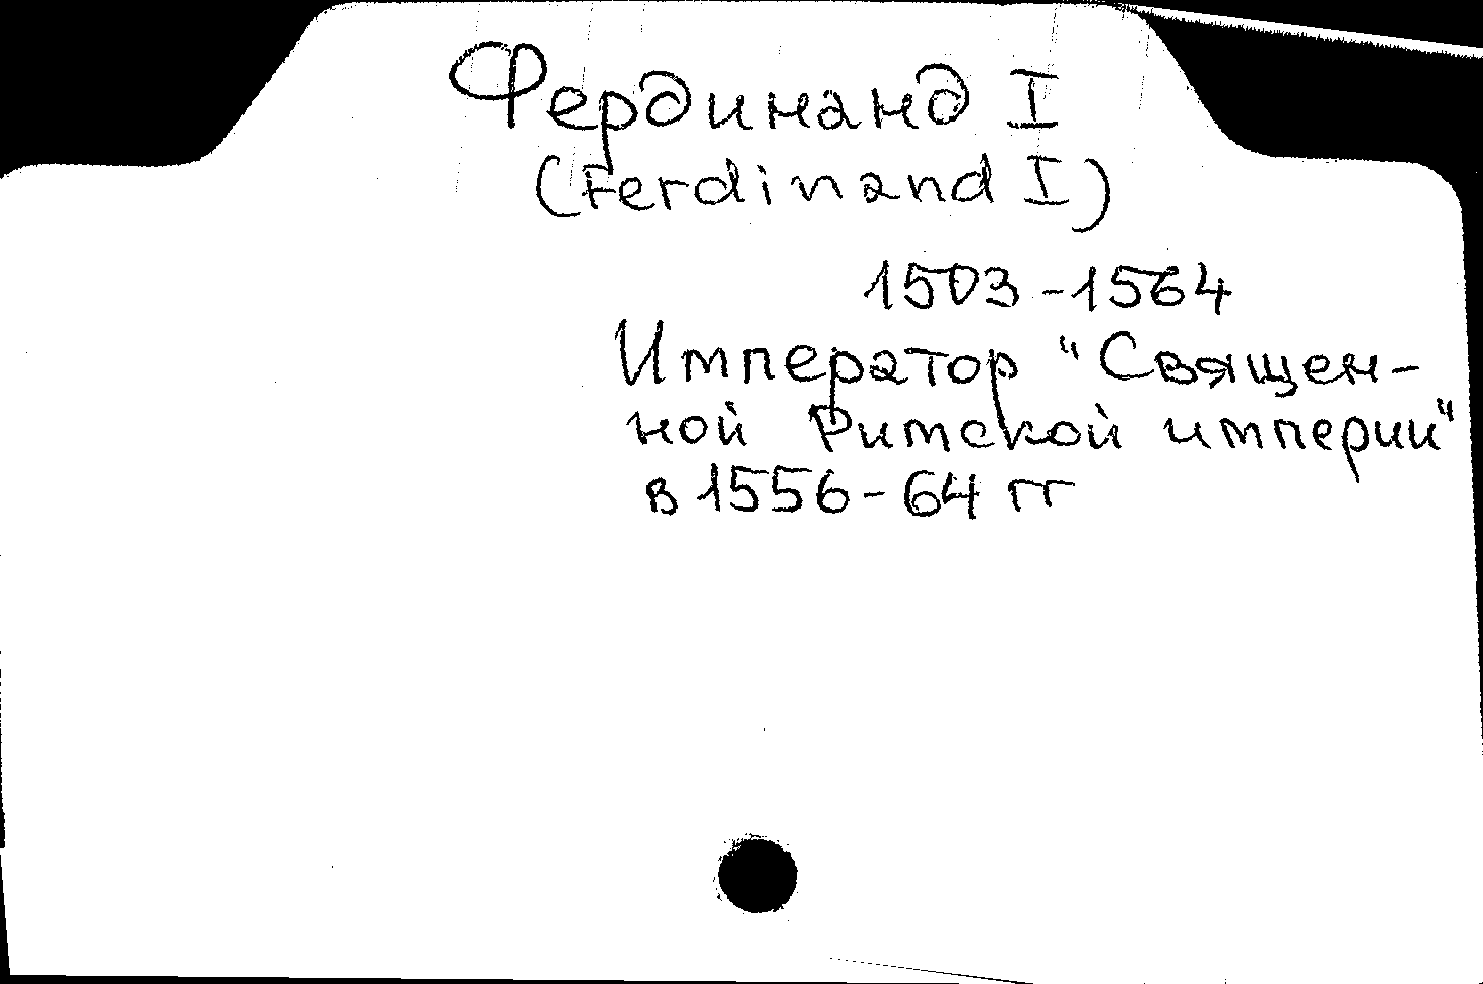 Фердинанд I
(Ferdinand I)
1503-1564
Император "Священ-
ной Римской империи"
в 1556-64 гг